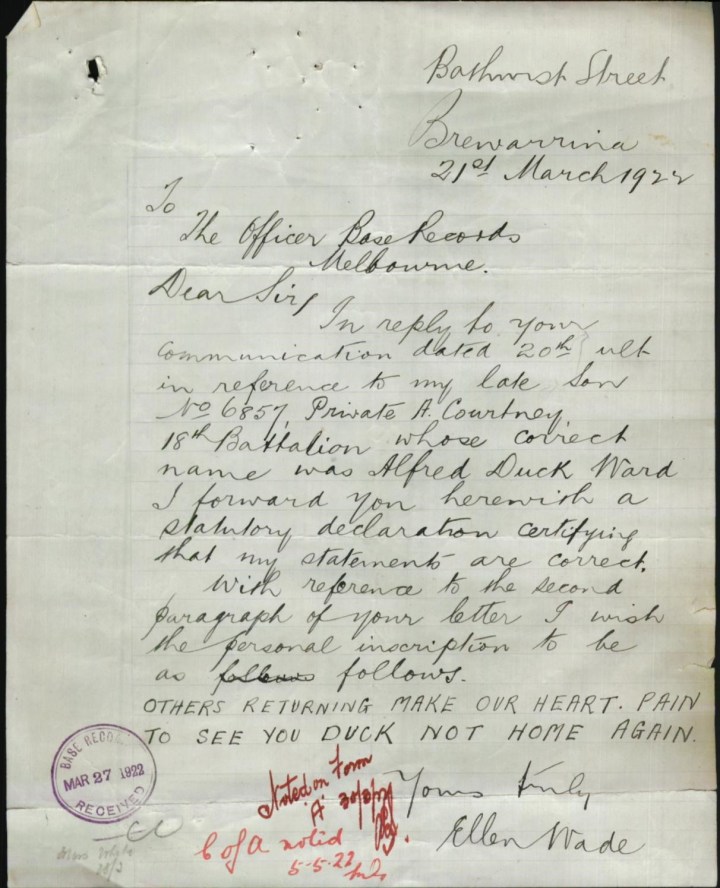 Bathurst Street
Brewarrina
21st March 1922
To
The Officer Base Records
Melbourne.
Dear Sir,
In reply to your
communication dated 20th ult
in reference to my late Son
No 6857, Private A. Courtney,
18th Battalion whose correct
name was Alfred Duck Ward
I forward you herewith a
statutory declaration certifying
that my statements are correct.
With reference to the second
paragraph of your letter I wish
the personal inscription to be
as follows follows.
OTHERS RETURNING MAKE OUR HEART. PAIN
TO SEE YOU DUCK NOT HOME AGAIN.
Yours truly
Ellen Wade
BASE RECO
MAR 27 1922
RECEIVED
Noted on Form
A
C of A notid
5-5-22